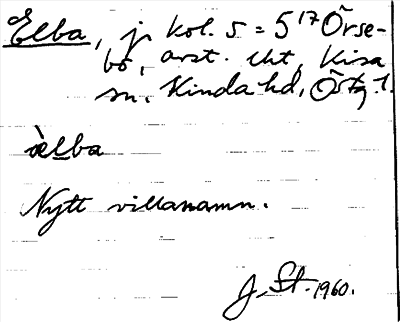 Elba, jr kol. 5 = 5¹⁷ Örse-
bo, avst. tht, Kisa
sn, Kinda hd, Östg. l.
àelba
Nytt villanamn.
J. St. 1960.